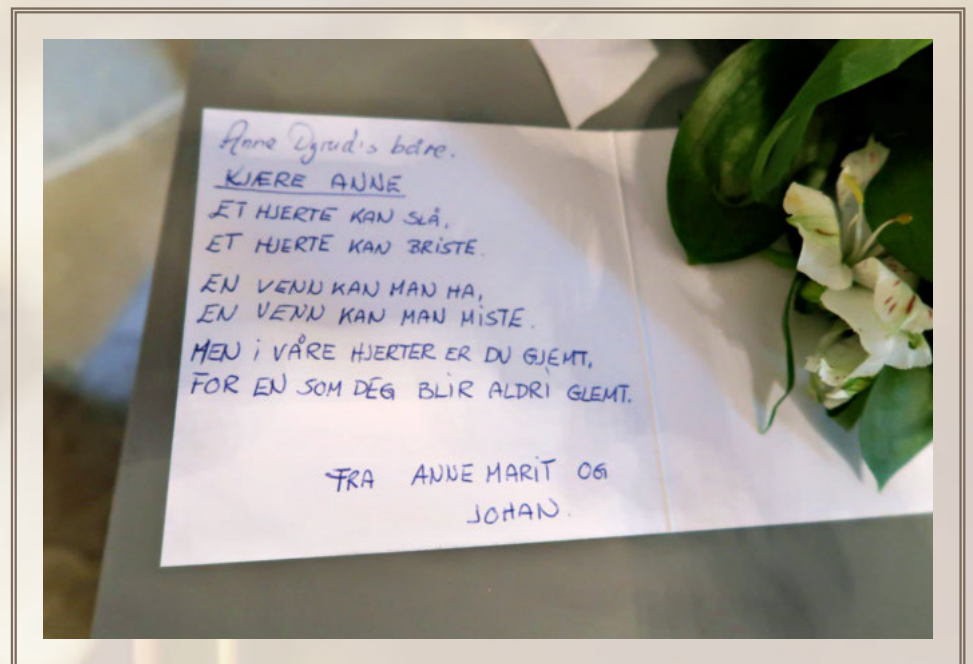 Anne Dgrud's båre.
KJÆRE ANNE
ET HJERTE KAN SLÅ,
ET HJERTE KAN BRISTE.
EN VENN KAN MAN HA,
EN VENN KAN MAN MISTE.
MEN i VÅRE HJERTER ER DU GJEMT,
FOR EN SOM DEG BLIR ALDRI GLEMT.
FRA ANNE MARIT OG
JOHAN.